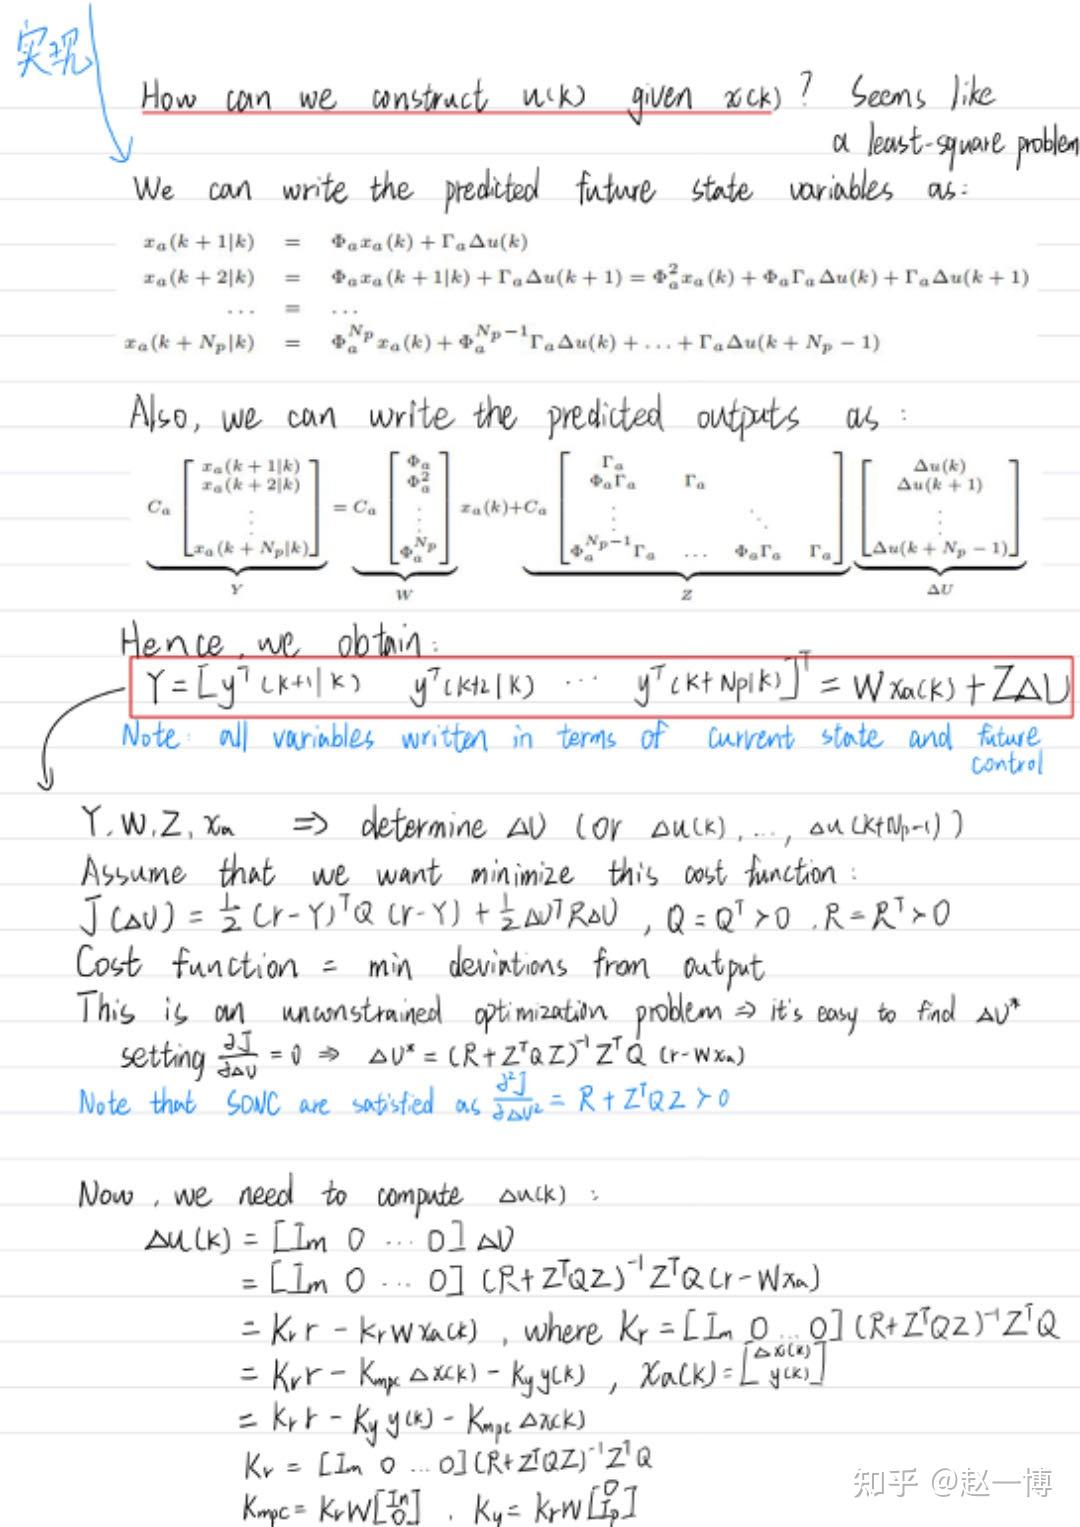 实现
How can we construct u(k) given x(k)? Seems like
a least-square problem
We can write the predicted future state variables as:
xₐ(k + 1|k) = Φₐxₐ(k) + ΓₐΔu(k)
xₐ(k + 2|k) = Φₐxₐ(k + 1|k) + ΓₐΔu(k + 1) = Φₐ²xₐ(k) + ΦₐΓₐΔu(k) + ΓₐΔu(k + 1)
... = ...
xₐ(k + Nₚ|k) = Φₐ^{Nₚ}xₐ(k) + Φₐ^{Nₚ−1}ΓₐΔu(k) + ... + ΓₐΔu(k + Nₚ − 1)
Also, we can write the predicted outputs as:
Cₐ [xₐ(k + 1|k) xₐ(k + 2|k) ⋮ xₐ(k + Nₚ|k)] = Cₐ [Φₐ Φₐ² ⋮ Φₐ^{Nₚ}] xₐ(k)+Cₐ [Γₐ ΦₐΓₐ Γₐ ⋮ ⋱ Φₐ^{Nₚ−1}Γₐ ... ΦₐΓₐ Γₐ] [Δu(k) Δu(k + 1) ⋮ Δu(k + Nₚ − 1)]
Y W Z ΔU
Hence, we obtain:
Y = [yᵀ(k+1|k) yᵀ(k+2|k) ... yᵀ(k+Np|k)]ᵀ = Wxa(k) + ZΔU
Note: all variables written in terms of current state and future
control
Y, W, Z, xa ⇒ determine ΔU (or Δu(k), ..., Δu(k+Np-1))
Assume that we want minimize this cost function:
J(ΔU) = ½ (r-Y)ᵀQ(r-Y) + ½ ΔUᵀRΔU, Q = Qᵀ > 0. R = Rᵀ > 0
Cost function = min deviations from output
This is an unconstrained optimization problem ⇒ it's easy to find ΔU*
setting ∂J/∂ΔU = 0 ⇒ ΔU* = (R+ZᵀQZ)⁻¹ZᵀQ(r-Wxa)
Note that SONC are satisfied as ∂²J/∂ΔU² = R + ZᵀQZ > 0
Now, we need to compute Δu(k):
Δu(k) = [Im 0 ... 0] ΔU
= [Im 0 ... 0] (R+ZᵀQZ)⁻¹ZᵀQ(r-Wxa)
= Kr r - KrWxa(k), where Kr = [Im 0 ... 0] (R+ZᵀQZ)⁻¹ZᵀQ
= Kr r - Kmpc Δx(k) - Ky y(k), xa(k) = [Δx(k) y(k)]
= Kr r - Ky y(k) - Kmpc Δx(k)
Kr = [Im 0 ... 0] (R+ZᵀQZ)⁻¹ZᵀQ
Kmpc = KrW[In 0]. Ky = KrW[0 Ip]
知乎 @赵一博